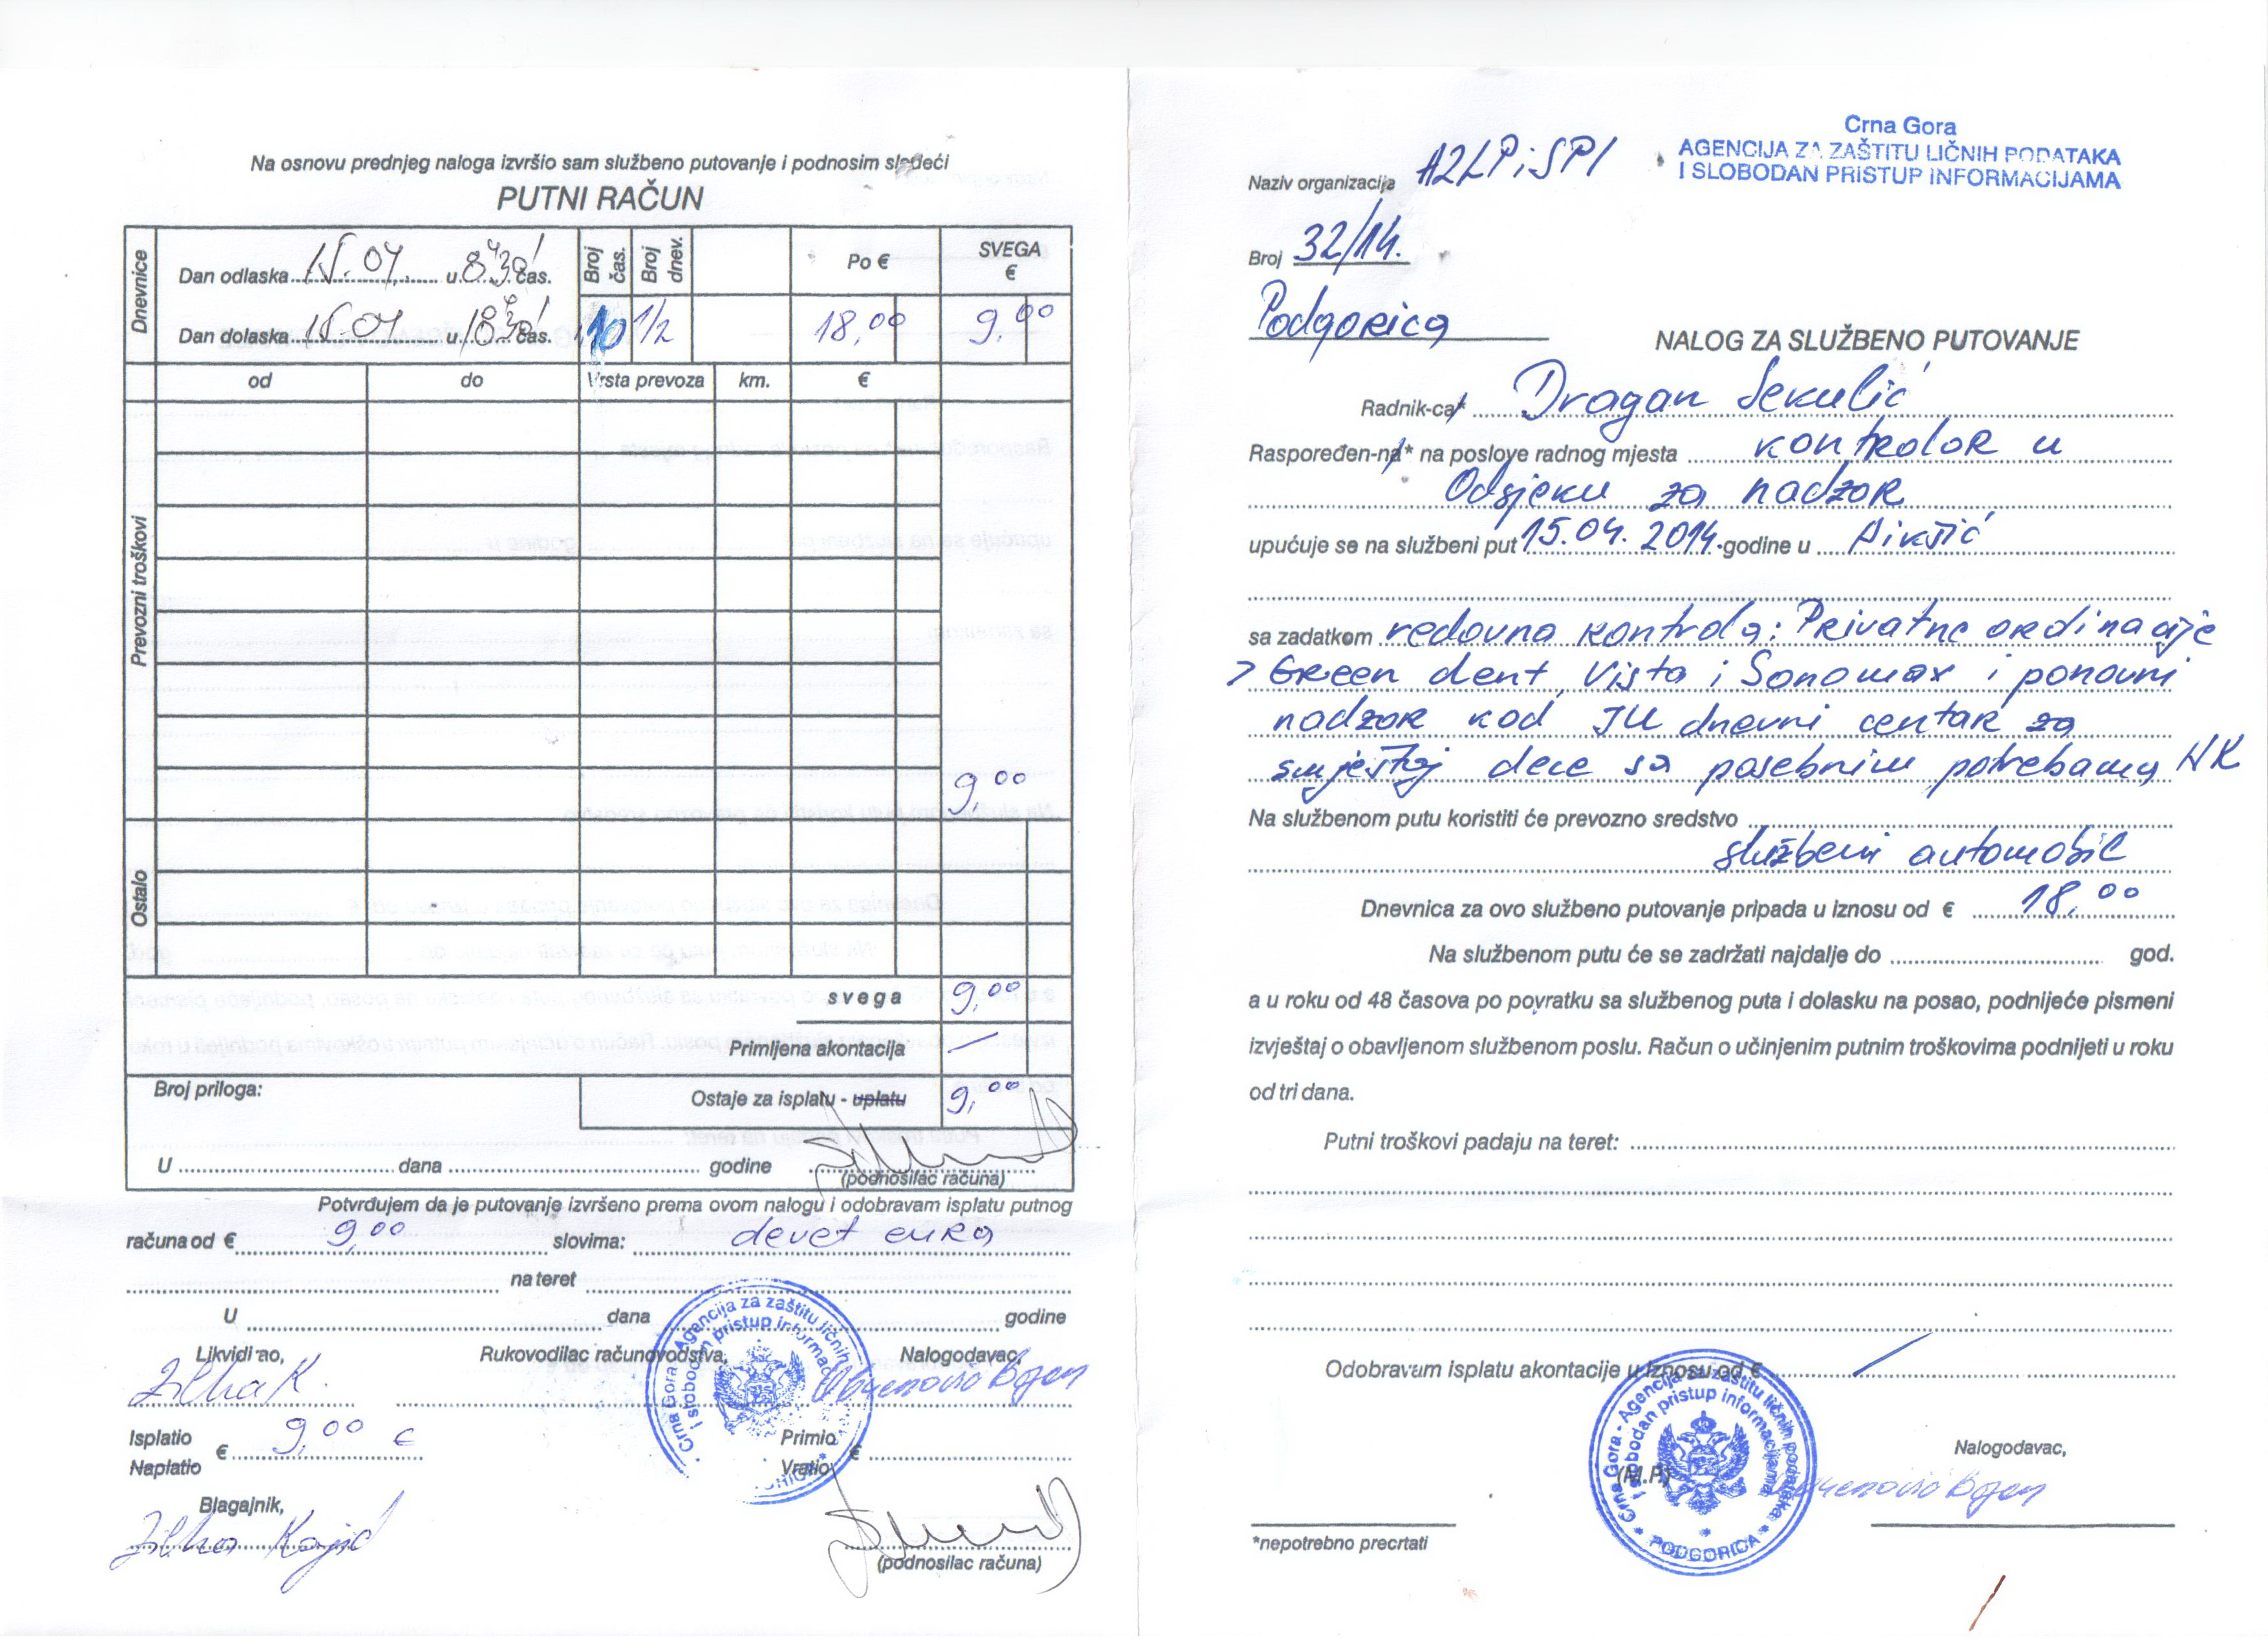 Na osnovu prednjeg naloga izvršio sam službeno putovanje i podnosim sledeći
PUTNI RAČUN
Dnevnice
Dan odlaska 15.04. u 8 30 čas.
Dan dolaska 15.04 u 18 30 čas.
Broj čas.
Broj dnev.
Po €
SVEGA €
10 1/2 18,00 9,00
od do Vrsta prevoza km. €
Prevozni troškovi
9,00
Ostalo
svega 9,00
Primljena akontacija —
Broj priloga:
Ostaje za isplatu - uplatu 9,00
U dana godine
(podnosilac računa)
Potvrđujem da je putovanje izvršeno prema ovom nalogu i odobravam isplatu putnog
računa od € 9,00 slovima: devet eura
na teret
U dana godine
Likvidirao, Rukovodilac računovodstva, Nalogodavac,
Isplatio
Naplatio € 9,00 €
Primio
Vratio €
Blagajnik,
(podnosilac računa)
Crna Gora - Agencija za zaštitu ličnih
i slobodan pristup informac
Crna Gora
AGENCIJA ZA ZAŠTITU LIČNIH PODATAKA
I SLOBODAN PRISTUP INFORMACIJAMA
Naziv organizacija AZLPiSPI
Broj 32/14.
Podgorica
NALOG ZA SLUŽBENO PUTOVANJE
Radnik-ca* Dragan Sekulić
Raspoređen-na* na poslove radnog mjesta kontrolor u
Odsjeku za nadzor
upućuje se na službeni put 15.04. 2014. godine u Nikšić
sa zadatkom redovna kontrola: Privatne ordinacije
> Green dent, Vista i Sonomax i ponovni
nadzor kod JU dnevni centar za
smještaj dece sa posebnim potrebama NK
Na službenom putu koristiti će prevozno sredstvo
službeni automobil
Dnevnica za ovo službeno putovanje pripada u iznosu od € 18,00
Na službenom putu će se zadržati najdalje do god.
a u roku od 48 časova po povratku sa službenog puta i dolasku na posao, podnijeće pismeni
izvještaj o obavljenom službenom poslu. Račun o učinjenim putnim troškovima podnijeti u roku
od tri dana.
Putni troškovi padaju na teret:
Odobravam isplatu akontacije u iznosu od € /
Nalogodavac,
(M.P.)
Crna Gora - Agencija za zaštitu ličnih podataka
i slobodan pristup informacijama
* PODGORICA *
*nepotrebno precrtati